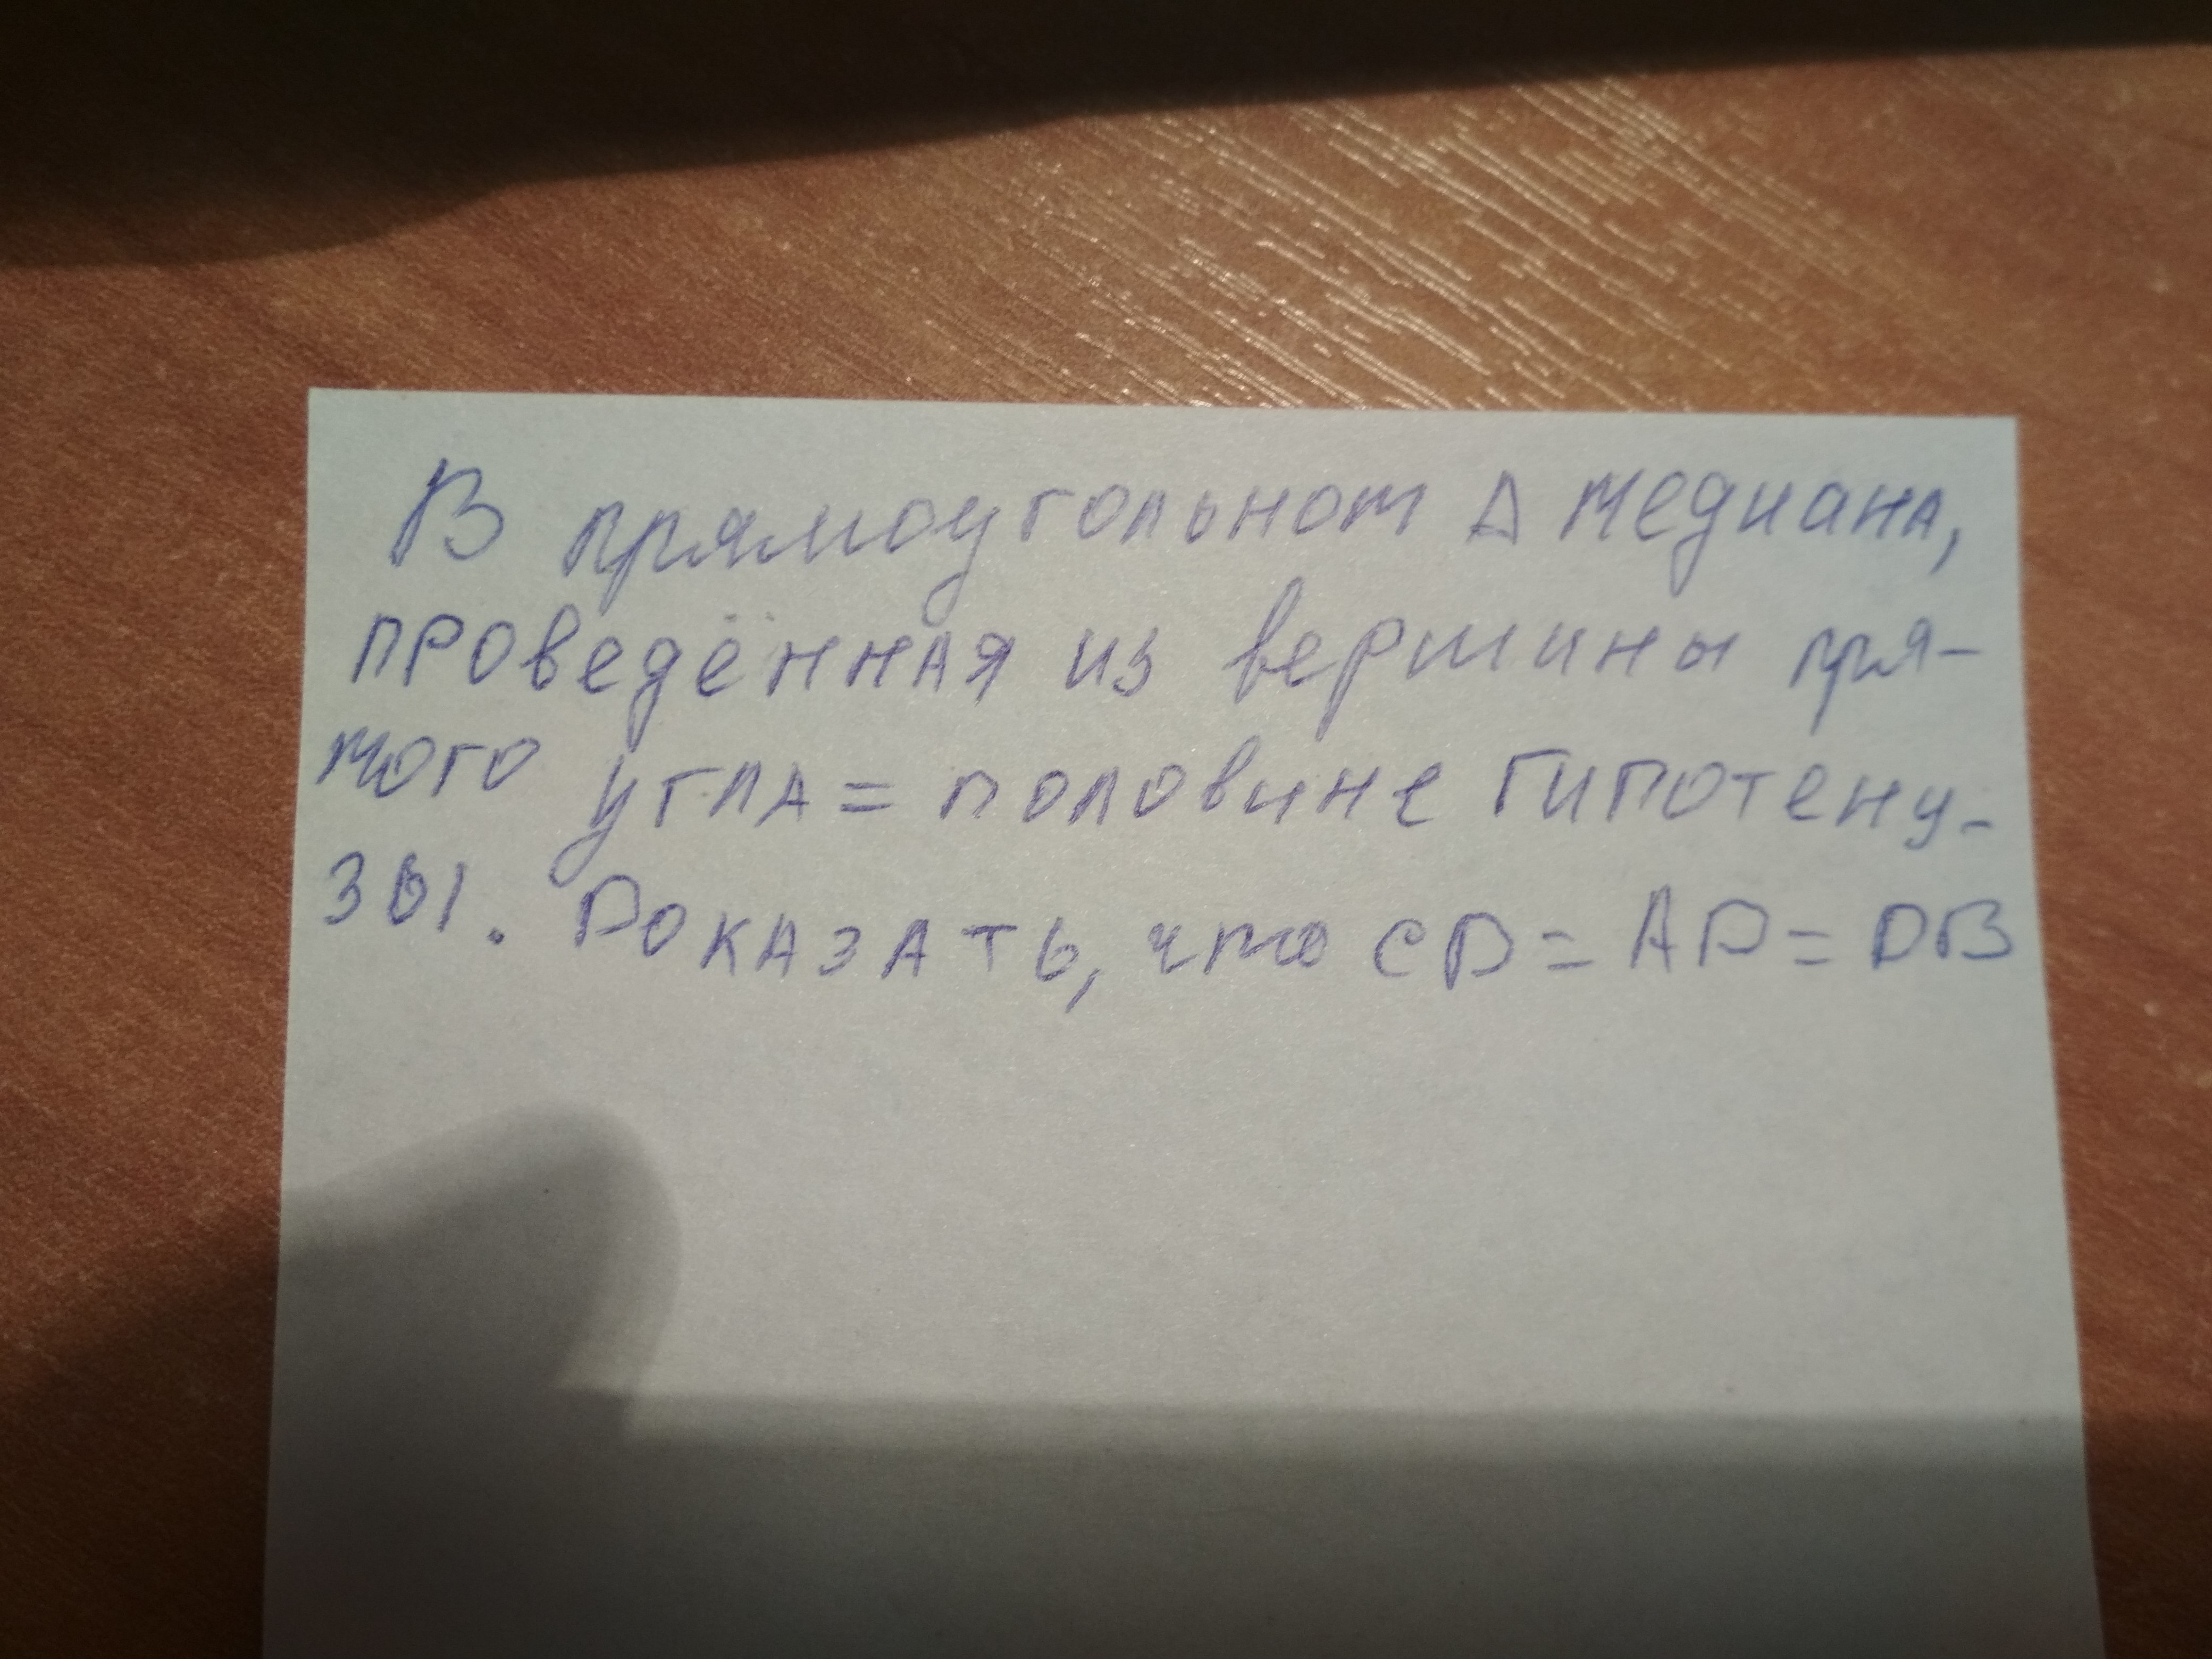 В прямоугольном Δ медиана,
проведённая из вершины пря-
мого угла = половине гипотену-
зы. Доказать, что CD = AD = DB